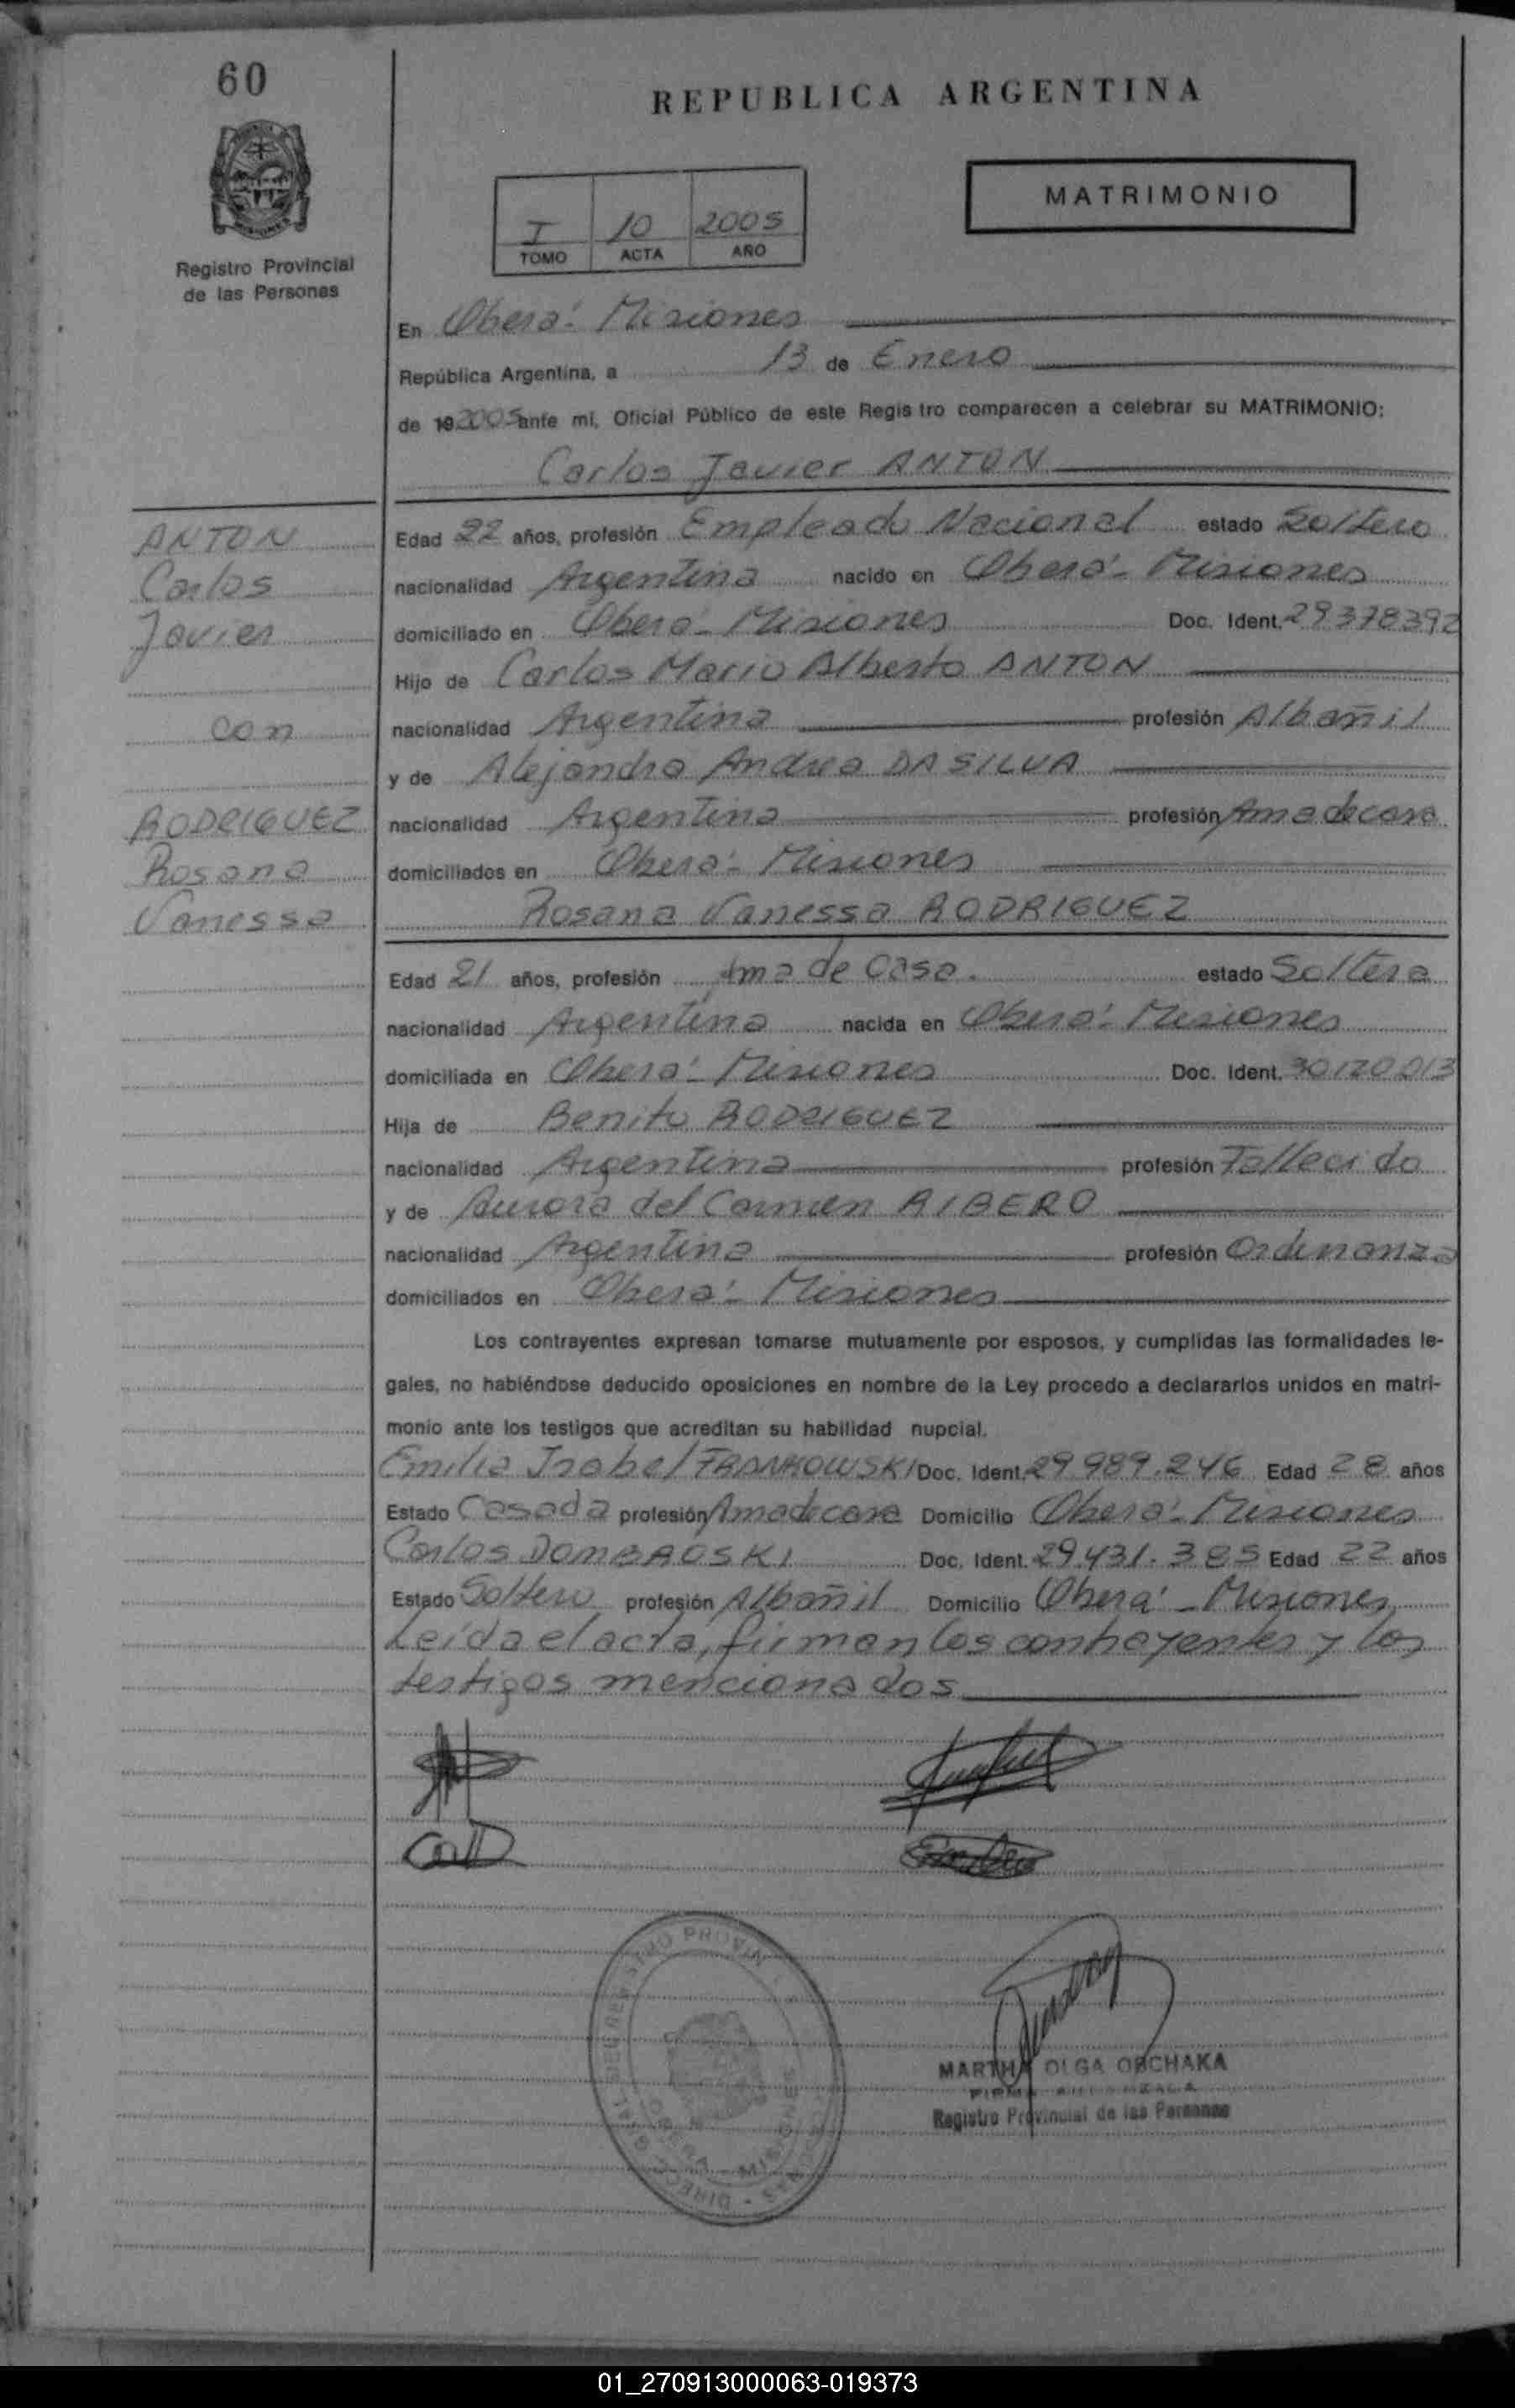 60
REPUBLICA ARGENTINA
MATRIMONIO
I 10 2005
TOMO ACTA AÑO
Registro Provincial
de las Personas
En Oberá - Misiones
República Argentina, a 13 de Enero
de 19 2005 ante mi, Oficial Público de este Regis tro comparecen a celebrar su MATRIMONIO:
Carlos Javier ANTON
ANTON
Carlos
Javier
con
RODRIGUEZ
Rosana
Vanessa
Edad 22 años, profesión Empleado Nacional estado Soltero
nacionalidad Argentina nacido en Oberá - Misiones
domiciliado en Oberá - Misiones Doc. Ident. 29378392
Hijo de Carlos Mario Alberto ANTON
nacionalidad Argentina profesión Albañil
y de Alejandra Andrea DA SILVA
nacionalidad Argentina profesión Ama de casa
domiciliados en Oberá - Misiones
Rosana Vanessa RODRIGUEZ
Edad 21 años, profesión Ama de Casa. estado Soltera
nacionalidad Argentina nacida en Oberá - Misiones
domiciliada en Oberá - Misiones Doc. Ident. 30120013
Hija de Benito RODRIGUEZ
nacionalidad Argentina profesión Fallecido
y de Aurora del Carmen RIBERO
nacionalidad Argentina profesión Ordenanza
domiciliados en Oberá - Misiones
Los contrayentes expresan tomarse mutuamente por esposos, y cumplidas las formalidades le-
gales, no habiéndose deducido oposiciones en nombre de la Ley procedo a declararlos unidos en matri-
monio ante los testigos que acreditan su habilidad nupcial.
Emilia Isabel FRANKOWSKI Doc. Ident. 29.989.246 Edad 28 años
Estado Casada profesión Ama de casa Domicilio Oberá - Misiones
Carlos DOMBROSKI Doc. Ident. 29.431.385 Edad 22 años
Estado Soltero profesión Albañil Domicilio Oberá - Misiones
Leída el acta, firman los contrayentes y los
testigos mencionados
MARTHA OLGA OBCHAKA
Registro Provincial de las Personas
01_270913000063-019373